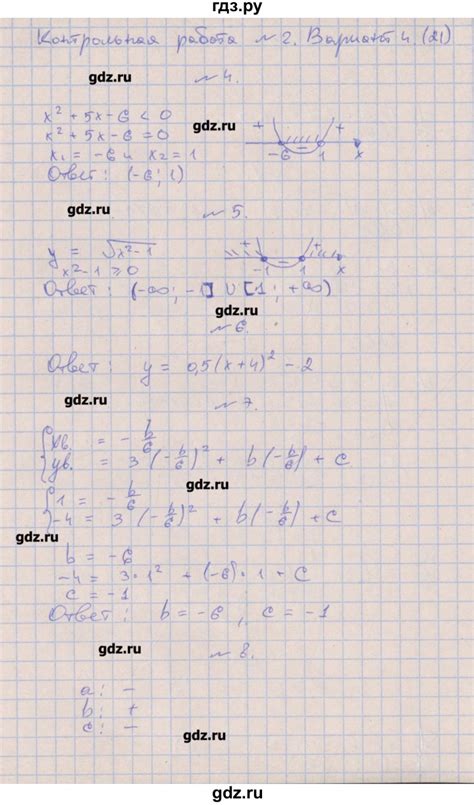 гдз.ру
Контрольная работа №2. Вариант 4 (21)
gdz.ru
№ 4.
x² + 5x - 6 < 0
gdz.ru
x² + 5x - 6 = 0
x₁ = -6 и x₂ = 1
+ - + -6 1 x
Ответ: (-6; 1)
gdz.ru
№ 5.
y = √x²-1
x² - 1 ≥ 0
+ - + -1 1 x
Ответ: (-∞; -1] ∪ [1; +∞)
gdz.ru
№ 6.
Ответ: y = 0,5(x+4)² - 2
gdz.ru
№ 7.
{xв. = -b/6
yв. = 3(-b/6)² + b(-b/6) + c
gdz.ru
{1 = -b/6
-4 = 3(-b/6)² + b(-b/6) + c
gdz.ru
b = -6
-4 = 3·1² + (-6)·1 + c
gdz.ru
c = -1
Ответ: b = -6, c = -1
gdz.ru
№ 8.
a: -
b: +
c: -
gdz.ru
gdz.ru